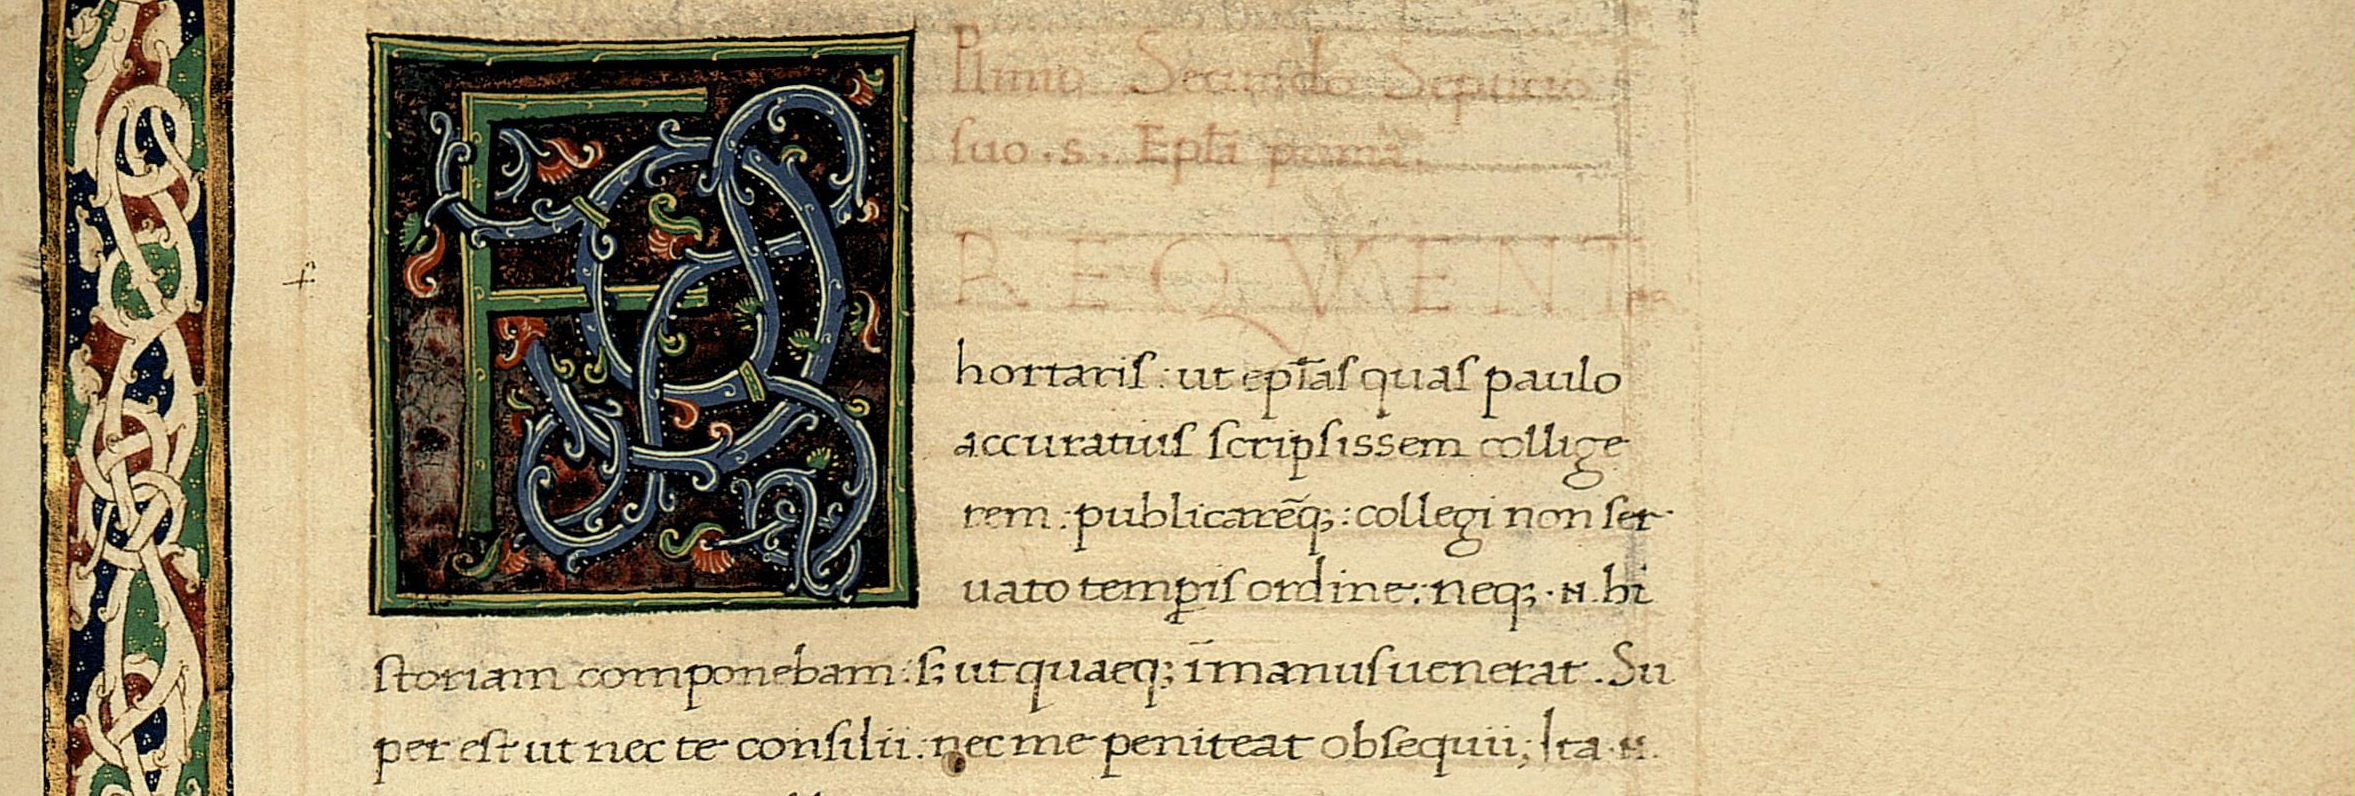 Plinius Secundo Septicio
suo . s . Epl̄a prima .
F REQVENTER
hortaris : ut epl̄as quas paulo
accuratius scripsissem collige
rem : publicarēq; : collegi non ser
uato temꝑis ordine : neq; . n . hi
storiam componebam : s; ut quaeq; ī manus uenerat . Su
per est ut nec te consilii : nec me peniteat obsequii ; Ita . n .